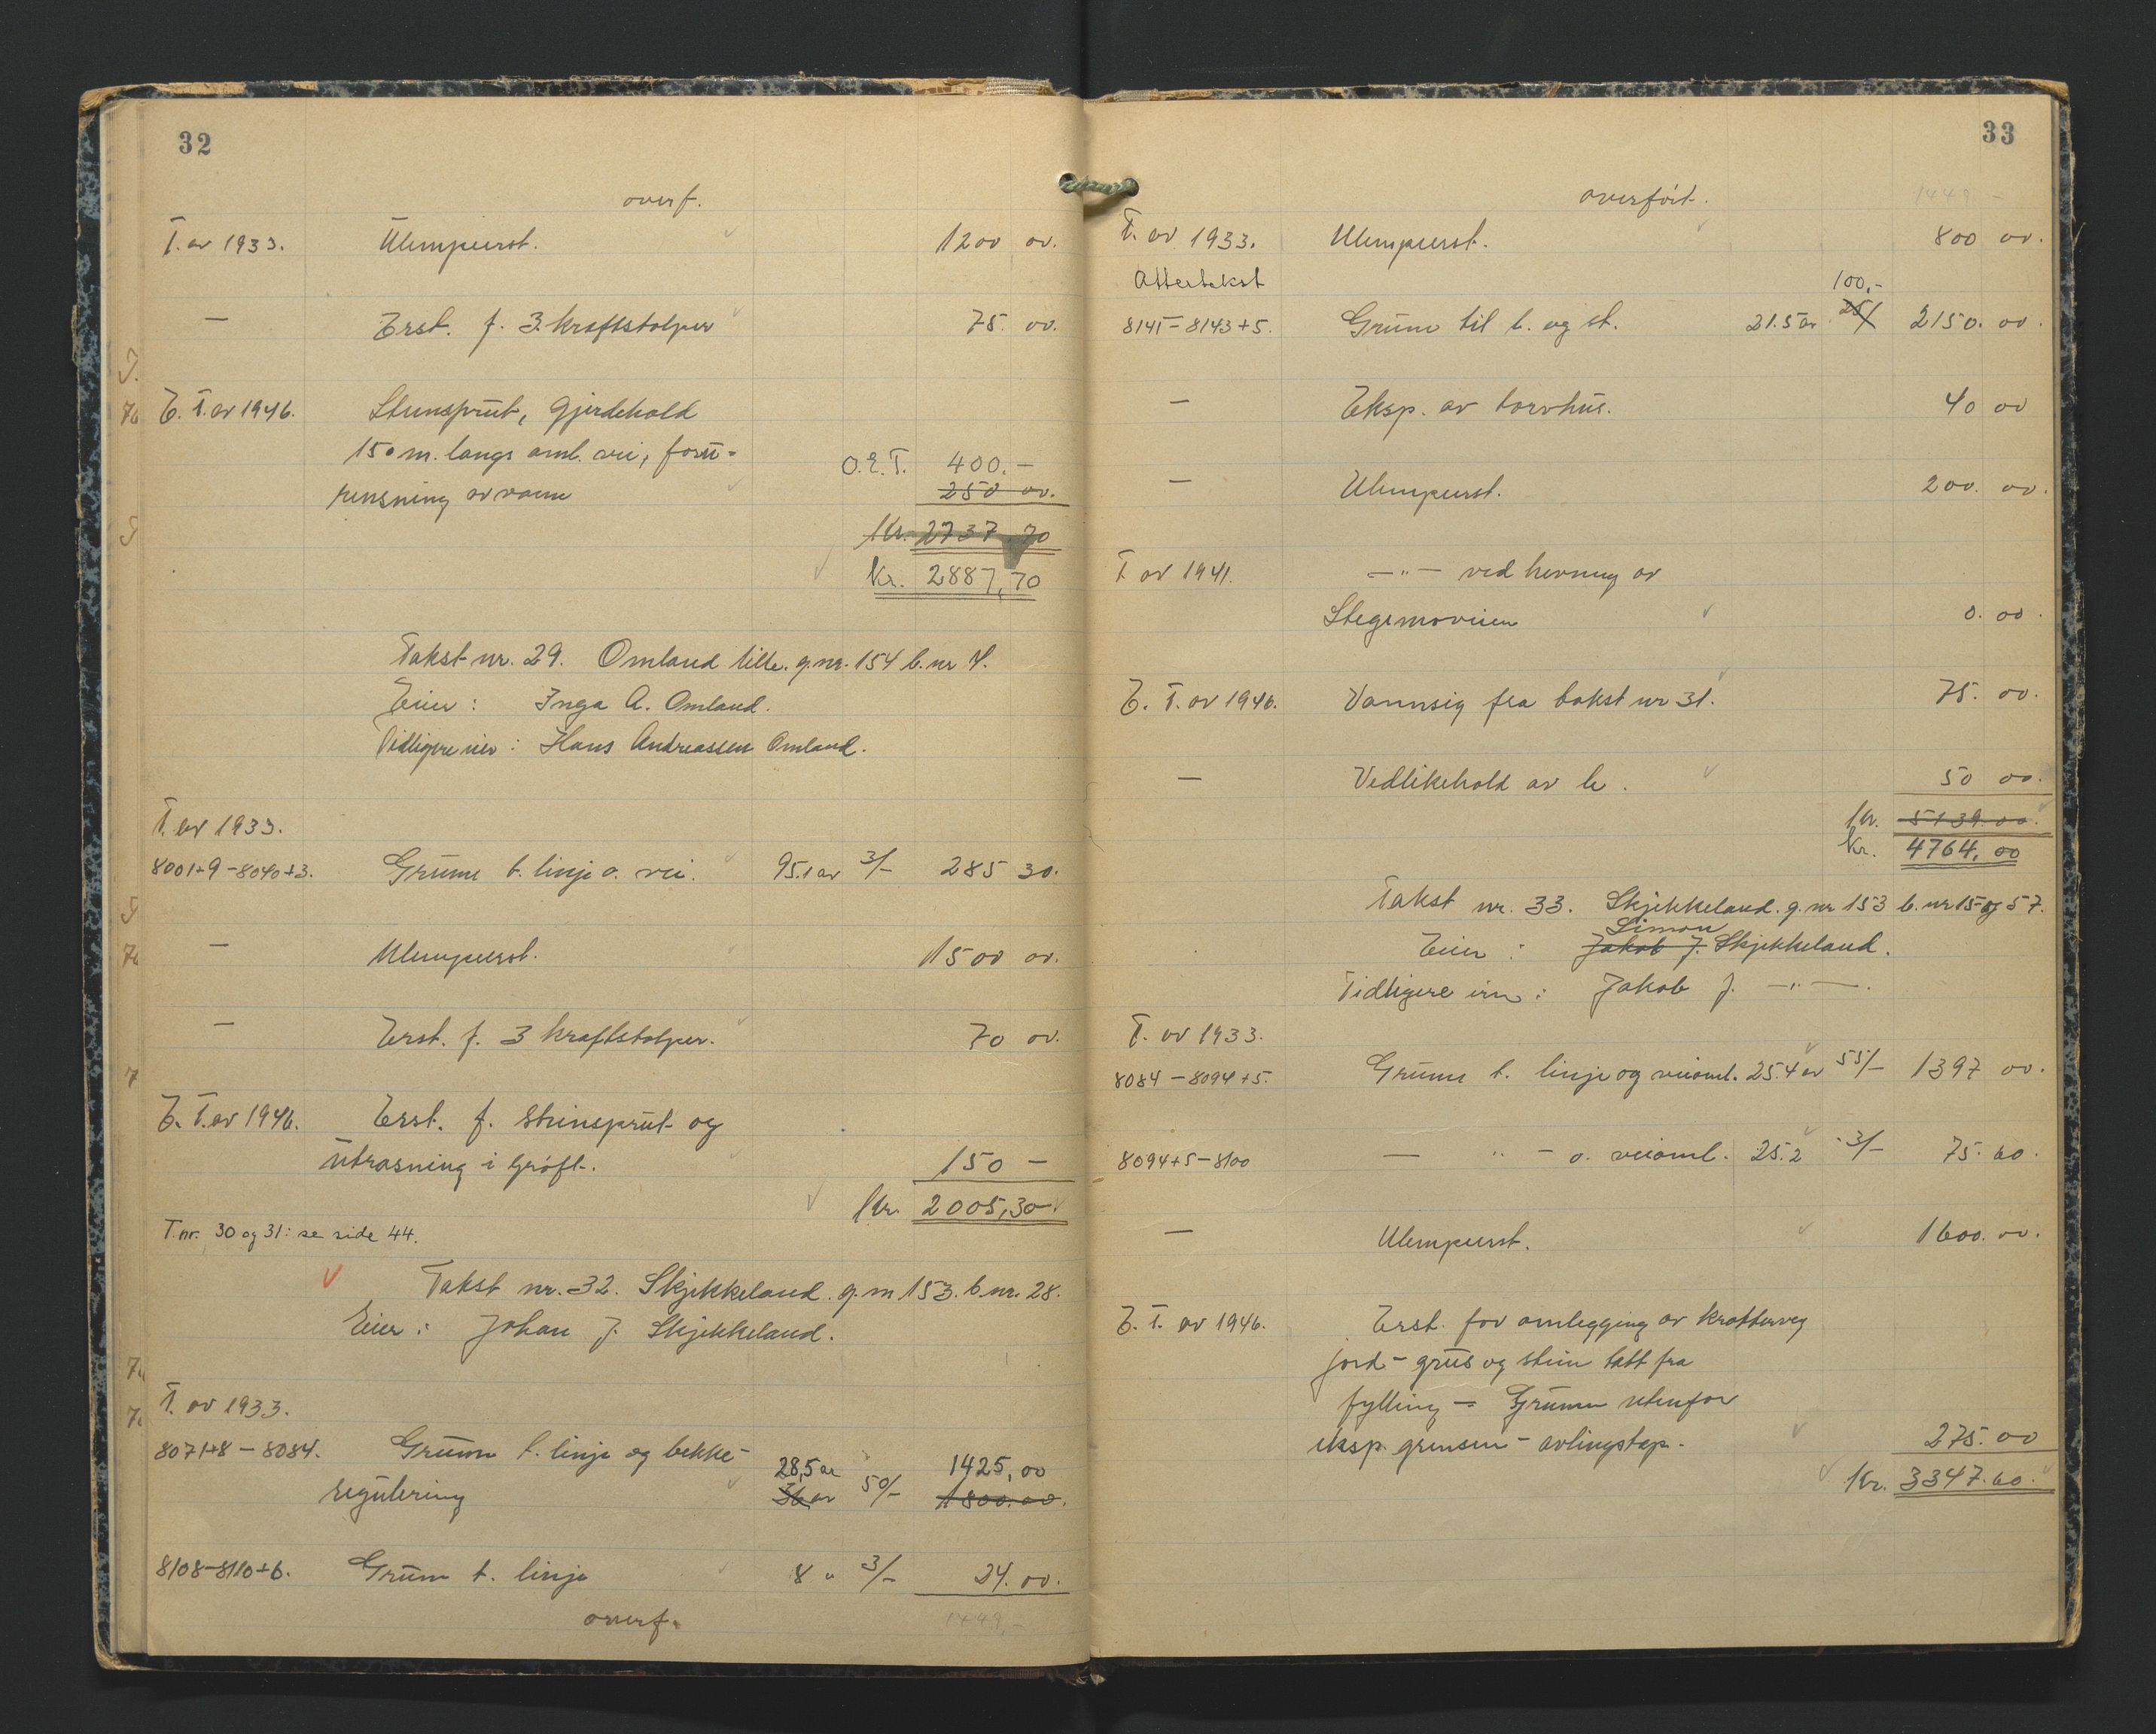 32
overf.
T. av 1933. Ulempeerst. 1200 00.
— Erst. f. 3. kraftstolper 75. 00.
E. T. av 1946. Stensprut, gjerdehold
150 m. langs oml. vei, foru-
rensning av vann O.E.T. 400.-
250 00.
Kr. 2737.70
Kr. 2887,70
Takst nr. 29. Omland lille. g.nr. 154 b.nr 4.
Eier: Inga A. Omland.
Tidligere eier: Hans Andreassen Omland.
T. av 1933.
8001+9-8040+3. Grunn t. linje o. vei. 95.1 ar 3/- 285 30.
— Ulempeerst. 1500 00.
— Erst. f. 3 kraftstolper. 70 00.
E. T. av 1946. Erst. f. steinsprut og
utrasning i grøft. 150 -
Kr. 2005,30
T.nr. 30 og 31: se side 44.
Takst nr. 32. Skjekkeland. g.nr 153. b.nr. 28.
Eier: Johan J. Skjekkeland.
T. av 1933.
8071+8-8084. Grunn t. linje og bekke-
28,5 ar 1425,00
regulering 36 ar 50/- 1800.00.
8108-8110+6. Grunn t. linje 8 " 3/- 24.00.
overf. 1449,-
33
overført. 1449 -
T. av 1933. Ulempeerst. 800 00.
Attertakst 100,-
8141-8143+5. Grunn til l. og st. 21.5 ar 25/ 2150. 00.
— Eksp. av torvhus. 40 00
— Ulempeerst. 200. 00.
T av 1941. —"— ved hevning av
Stegemoveien 0. 00.
E. T. av 1946. Vannsig fra takst nr 31. 75. 00.
— Vedlikehold av le. 50 00.
Kr. 5139.00.
Kr. 4764,00
Takst nr. 33. Skjekkeland. g.nr 153 b.nr 15 og 57.
Simon
Eier: Jakob J. Skjekkeland.
Tidligere eier: Jakob J. —"—.
T. av 1933.
8084-8094+5. Grunn t. linje og veioml. 25.4 ar 55/- 1397 00.
8094+5-8100 — " - o. veioml. 25.2 " 3/- 75.60.
— Ulempeerst. 1600.00.
E. T. av 1946. Erst. for omlegging av kratterveg
jord- grus og stein tatt fra
fylling - Grunn utenfor
eksp. grensen - avlingstap. 275.00
Kr. 3347.60.